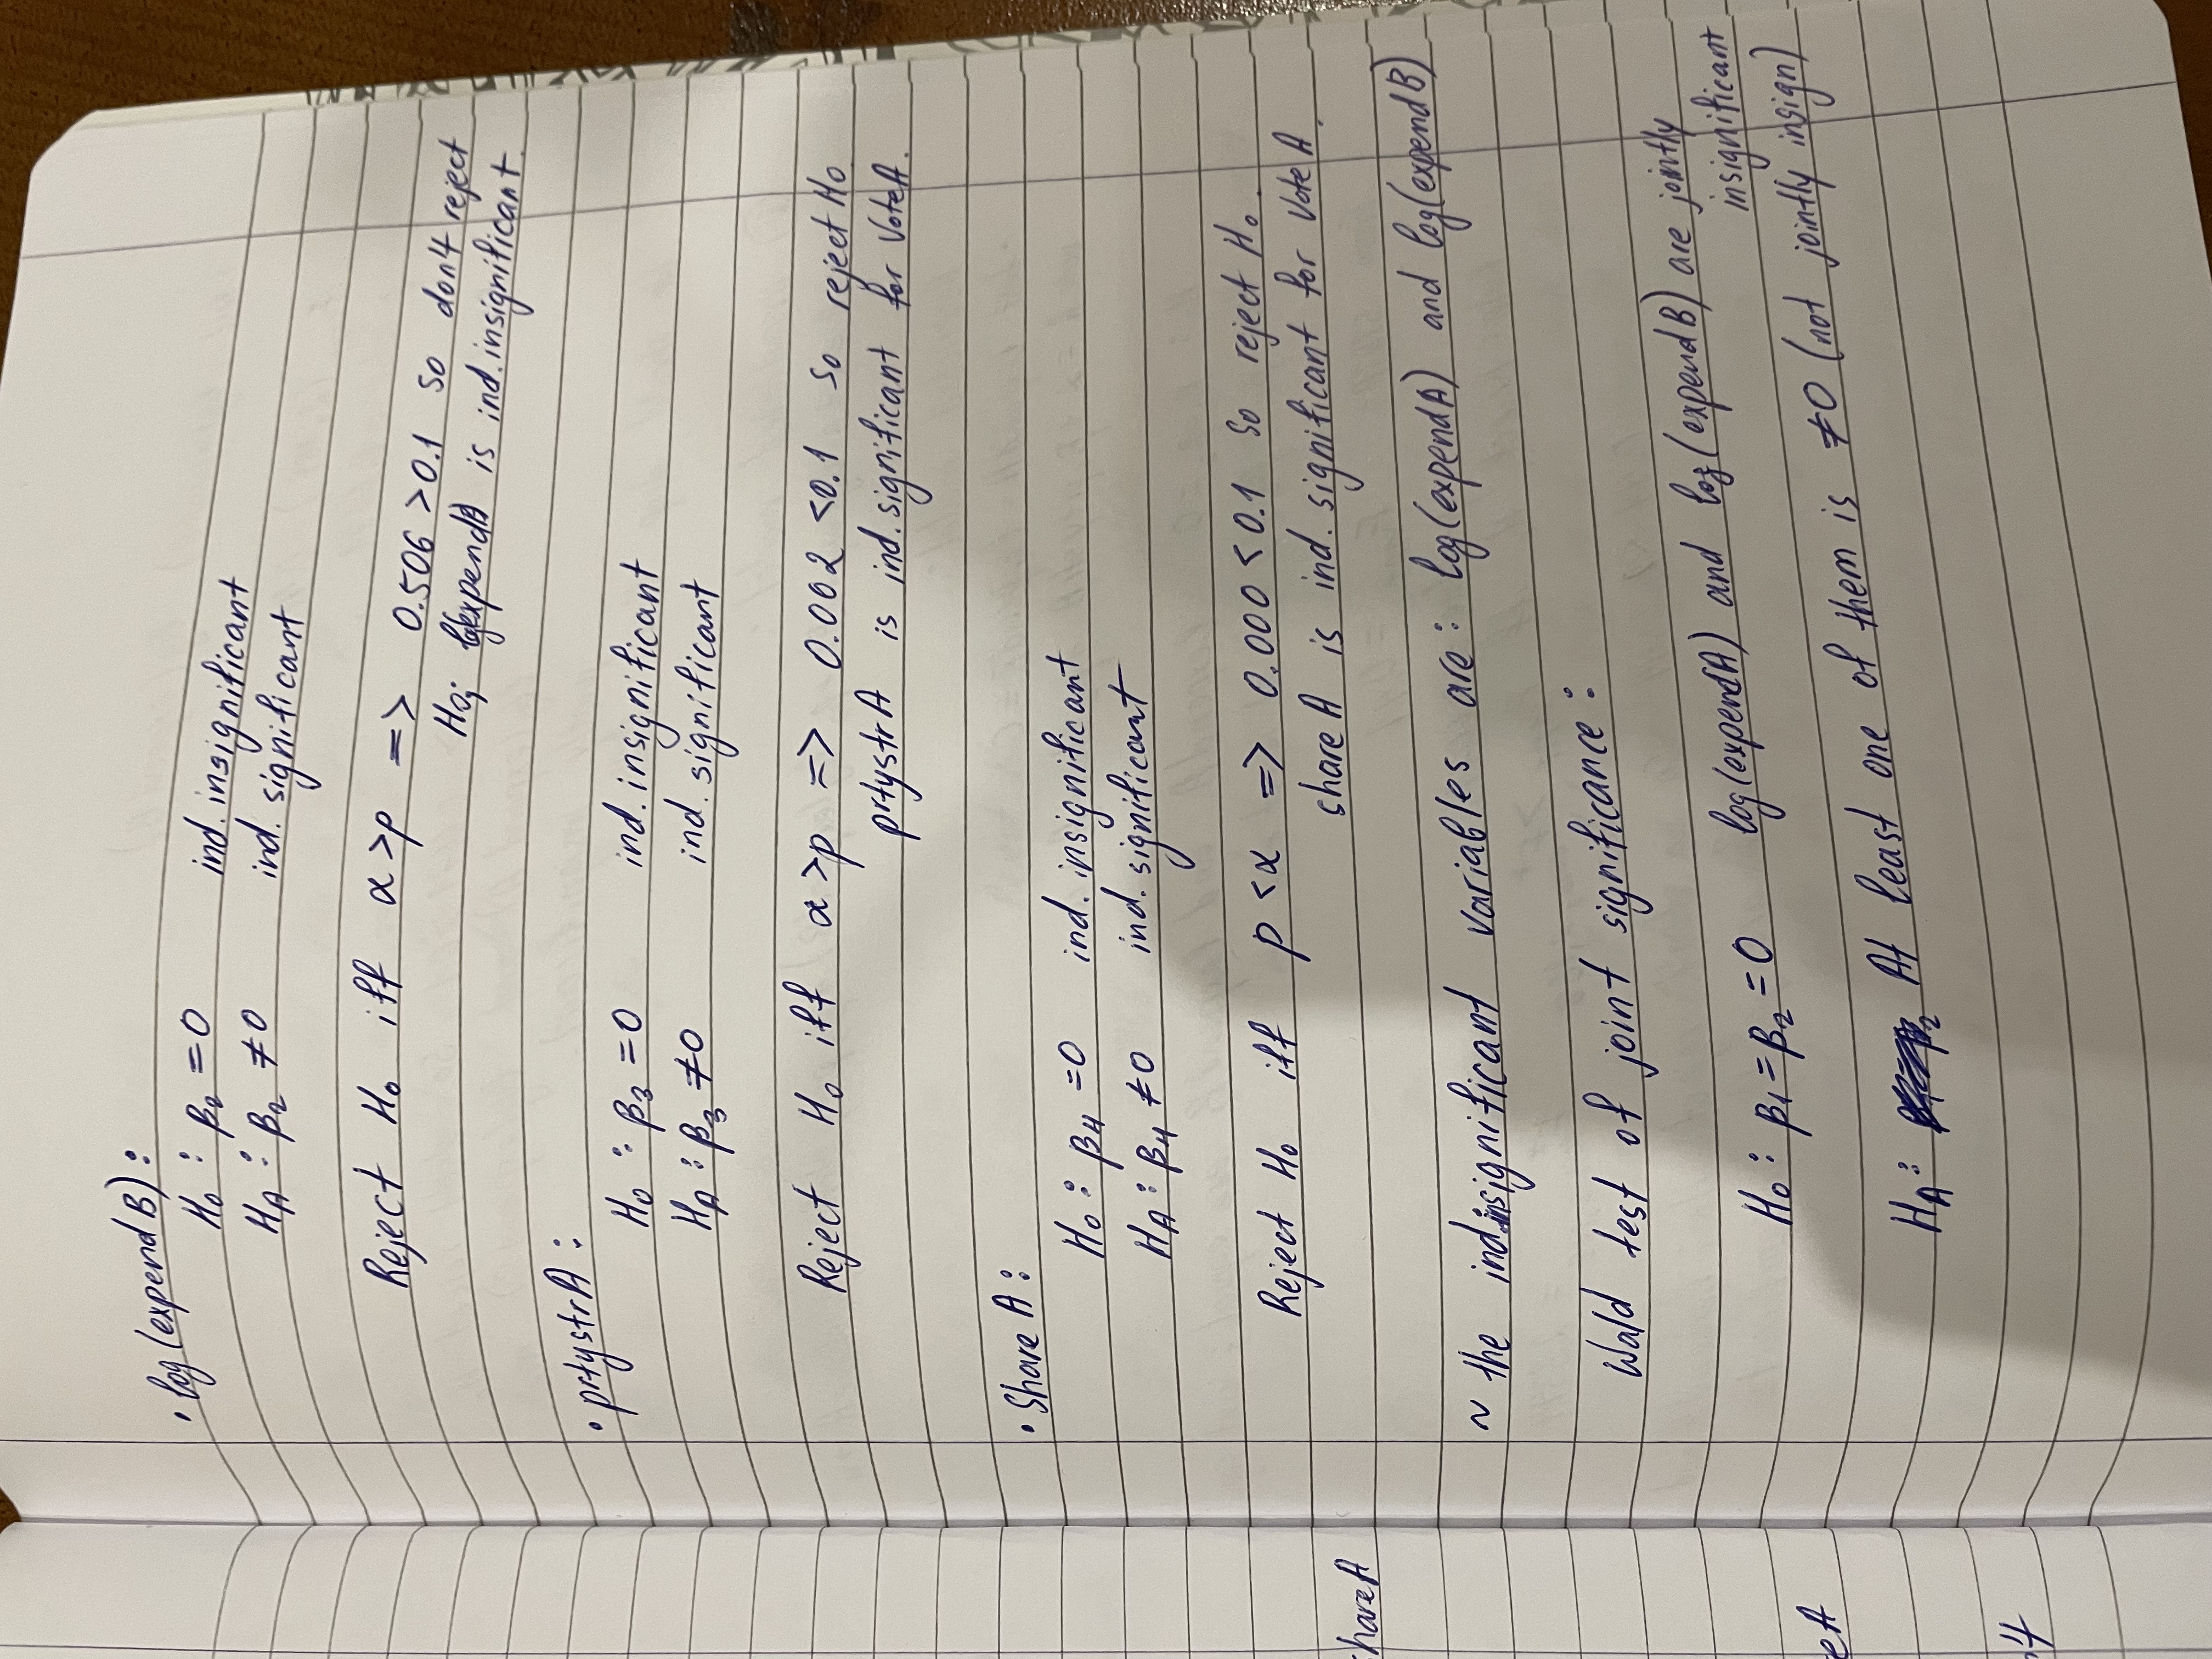 • log(expendB):
H₀ : β₂ = 0 ind. insignificant
H_A : β₂ ≠ 0 ind. significant
Reject H₀ iff α > p => 0.506 > 0.1 so don't reject
H₀; log(expendB) is ind. insignificant.
• prtystrA :
H₀ : β₃ = 0 ind. insignificant
H_A : β₃ ≠ 0 ind. significant
Reject H₀ iff α > p => 0.002 < 0.1 so reject H₀
prtystrA is ind. significant for VoteA.
• Share A :
H₀ : β₄ = 0 ind. insignificant
H_A : β₄ ≠ 0 ind. significant
Reject H₀ iff p < α => 0.000 < 0.1 So reject H₀.
share A is ind. significant for Vote A.
~ the ind. insignificant variables are : log(expendA) and log(expendB)
Wald test of joint significance :
H₀ : β₁ = β₂ = 0 log(expendA) and log(expendB) are jointly
insignificant
H_A : At least one of them is ≠ 0 (not jointly insign)
hareA
eA